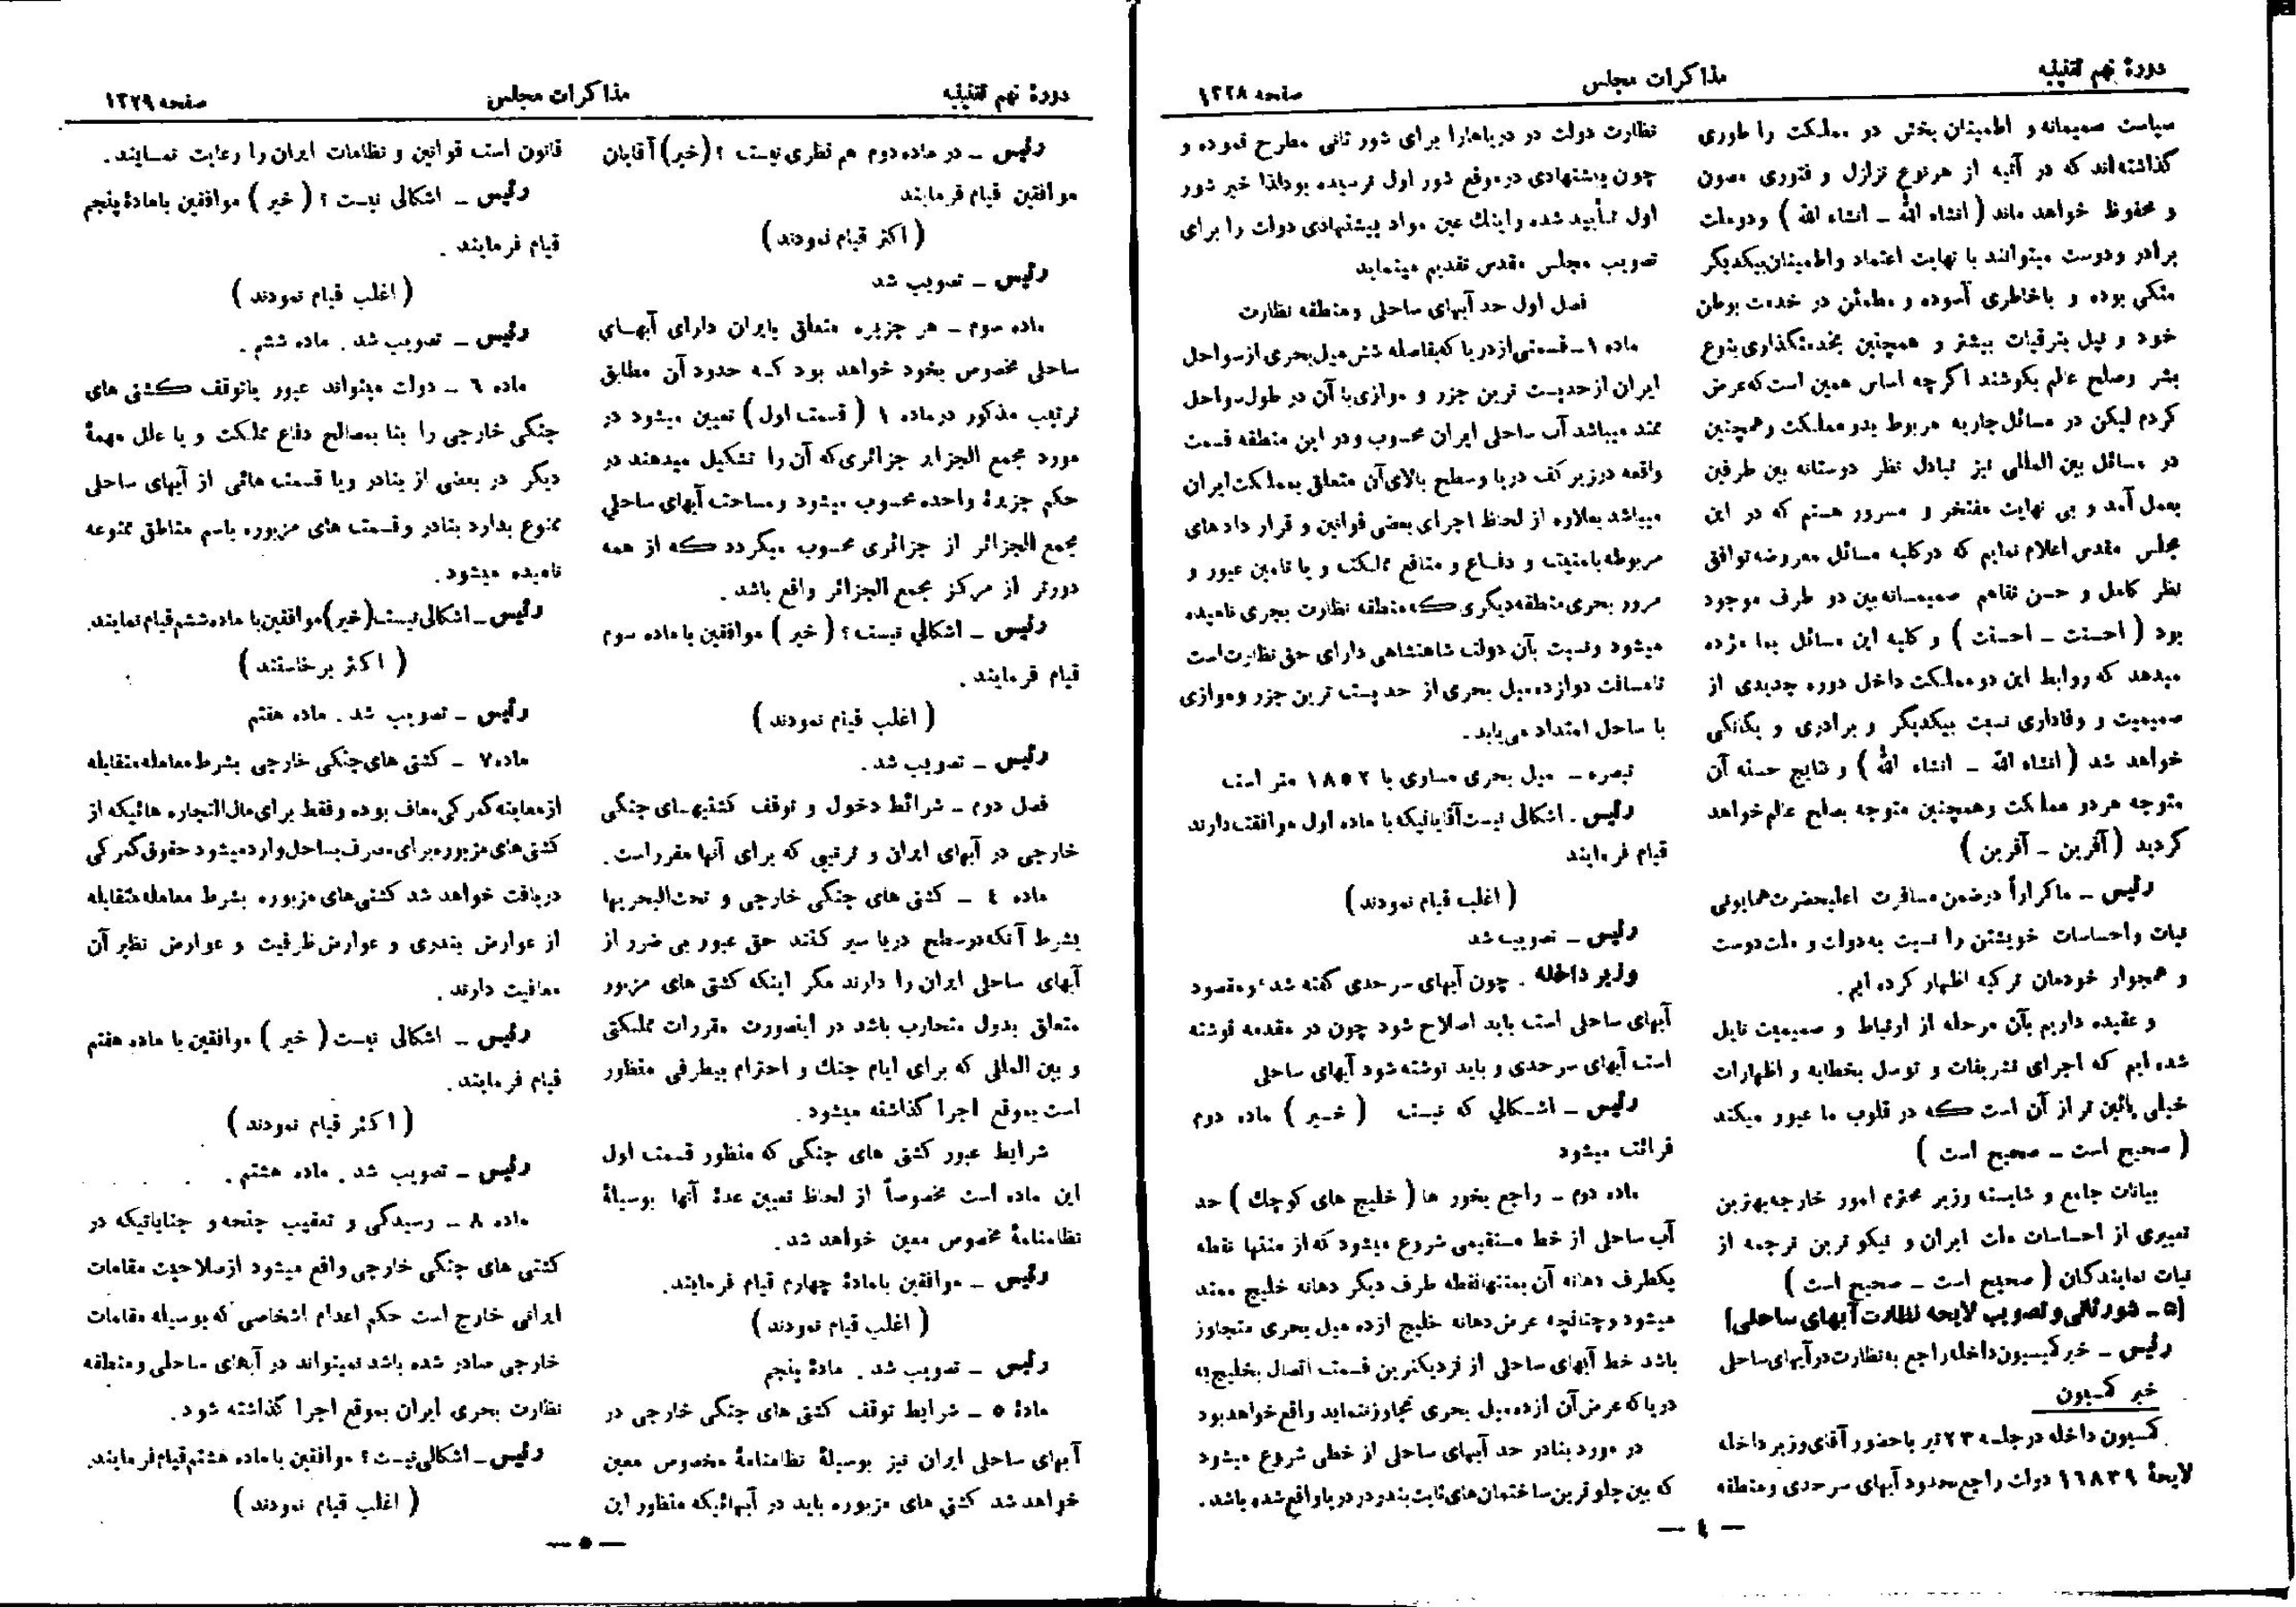 دورهٔ نهم تقنینیه
مذاکرات مجلس
صفحه ۱۳۲۸
سیاست صمیمانه و اطمینان بخش دو مملکت را طوری
گذاشته‌اند که در آتیه از هر نوع تزلزل و فتوری مصون
و محفوظ خواهد ماند ( انشاء الله ــ انشاء الله ) و دو ملت
برادر و دوست میتوانند با نهایت اعتماد و اطمینان بیکدیگر
متکی بوده و باخاطری آسوده و مطمئن در خدمت بوطن
خود و نیل بترقیات بیشتر و همچنین بخدمتگذاری بنوع
بشر و صلح عالم بکوشند اگرچه اساس همین است که عرض
کردم لیکن در مسائل جاریه مربوط بدو مملکت و همچنین
در مسائل بین المللی نیز تبادل نظر دوستانه بین طرفین
بعمل آمد و بی نهایت مفتخر و مسرور هستم که در این
مجلس مقدس اعلام نمایم که در کلیه مسائل معروضه توافق
نظر کامل و حسن تفاهم صمیمانه بین دو طرف موجود
بود ( احسنت ــ احسنت ) و کلیه این مسائل بما مژده
میدهد که روابط این دو مملکت داخل دوره جدیدی از
صمیمیت و وفاداری نسبت بیکدیگر و برادری و یگانگی
خواهد شد ( انشاء الله ــ انشاء الله ) و نتایج حسنه آن
متوجه هر دو مملکت و همچنین متوجه بصلح عالم خواهد
گردید ( آفرین ــ آفرین )
رئیس ــ ما کراراً در ضمن مسافرت اعلیحضرت همایونی
نیات و احساسات خویشتن را نسبت به دولت و ملت دوست
و همجوار خودمان ترکیه اظهار کرده ایم .
و عقیده داریم بآن مرحله از ارتباط و صمیمیت نایل
شده ایم که اجرای تشریفات و توسل بخطابه و اظهارات
خیلی پائین تر از آن است که در قلوب ما عبور میکند
( صحیح است ــ صحیح است )
بیانات جامع و شایسته وزیر محترم امور خارجه بهترین
تعبیری از احساسات ملت ایران و نیکو ترین ترجمه از
نیات نمایندگان ( صحیح است ــ صحیح است )
[۵ ــ شور ثانی و تصویب لایحه نظارت آبهای ساحلی]
رئیس ــ خبر کمیسیون داخله راجع به نظارت در آبهای ساحلی
خبر کمسیون
کمسیون داخله در جلسه ۲۳ تیر با حضور آقای وزیر داخله
لایحهٔ ۱٦۸۳۹ دولت راجع بحدود آبهای سرحدی و منطقه
نظارت دولت در دریاها را برای شور ثانی مطرح نموده و
چون پیشنهادی در موقع شور اول نرسیده بود لذا خبر شور
اول تأیید شده و اینک عین مواد پیشنهادی دولت را برای
تصویب مجلس مقدس تقدیم مینماید
فصل اول حد آبهای ساحلی و منطقه نظارت
ماده ۱ ــ قسمتی از دریا که بفاصله شش میل بحری از سواحل
ایران از حد پست ترین جزر و موازی با آن در طول سواحل
ممتد میباشد آب ساحلی ایران محسوب و در این منطقه قسمت
واقعه در زیر کف دریا و سطح بالای آن متعلق بمملکت ایران
میباشد بعلاوه از لحاظ اجرای بعضی قوانین و قرار دادهای
مربوطه بامنیت و دفاع و منافع مملکت و یا تامین عبور و
مرور بحری منطقه دیگری که منطقه نظارت بحری نامیده
میشود و نسبت بآن دولت شاهنشاهی دارای حق نظارت است
تا مسافت دوازده میل بحری از حد پست ترین جزر و موازی
با ساحل امتداد می‌یابد .
تبصره ــ میل بحری مساوی با ۱۸۵۲ متر است
رئیس . اشکالی نیست آقایانیکه با ماده اول موافقت دارند
قیام فرمایند
( اغلب قیام نمودند )
رئیس ــ تصویب شد
وزیر داخله . چون آبهای سرحدی گفته شد ، و مقصود
آبهای ساحلی است باید اصلاح شود چون در مقدمه نوشته
است آبهای سرحدی و باید نوشته شود آبهای ساحلی
رئیس ــ اشکالی که نیست ( خیر ) ماده دوم
قرائت میشود
ماده دوم ــ راجع بخور ها ( خلیج های کوچک ) حد
آب ساحلی از خط مستقیمی شروع میشود که از منتها نقطه
یکطرف دهانه آن بمنتها نقطه طرف دیگر دهانه خلیج ممتد
میشود و چنانچه عرض دهانه خلیج از ده میل بحری متجاوز
باشد خط آبهای ساحلی از نزدیکترین قسمت اتصال بخلیج به
دریا که عرض آن از ده میل بحری تجاوز ننماید واقع خواهد بود
در مورد بنادر حد آبهای ساحلی از خطی شروع میشود
که بین جلو ترین ساختمان های ثابت بندر در دریا واقع شده باشد .
— ٤ —
دورهٔ نهم تقنینیه
مذاکرات مجلس
صفحه ۱۳۲۹
رئیس ــ در ماده دوم هم نظری نیست ؟ (خیر) آقایان
موافقین قیام فرمایند
( اکثر قیام نمودند )
رئیس ــ تصویب شد
ماده سوم ــ هر جزیره متعلق بایران دارای آبهای
ساحلی مخصوص بخود خواهد بود که حدود آن مطابق
ترتیب مذکور در ماده ۱ ( قسمت اول ) تعیین میشود در
مورد مجمع الجزایر جزائری که آن را تشکیل میدهند در
حکم جزیرهٔ واحده محسوب میشود و مساحت آبهای ساحلی
مجمع الجزائر از جزائری محسوب میگردد که از همه
دورتر از مرکز مجمع الجزائر واقع باشد .
رئیس ــ اشکالی نیست ؟ ( خیر ) موافقین با ماده سوم
قیام فرمایند .
( اغلب قیام نمودند )
رئیس ــ تصویب شد .
فصل دوم ــ شرائط دخول و توقف کشتیهای جنگی
خارجی در آبهای ایران و ترتیبی که برای آنها مقرر است .
ماده ٤ ــ کشتی های جنگی خارجی و تحت‌البحریها
بشرط آنکه در سطح دریا سیر کنند حق عبور بی ضرر از
آبهای ساحلی ایران را دارند مگر اینکه کشتی های مزبور
متعلق بدول متحارب باشد در اینصورت مقررات مملکتی
و بین المللی که برای ایام جنگ و احترام بیطرفی منظور
است بموقع اجرا گذاشته میشود.
شرایط عبور کشتی های جنگی که منظور قسمت اول
این ماده است مخصوصاً از لحاظ تعیین عدهٔ آنها بوسیلهٔ
نظامنامهٔ مخصوص معین خواهد شد .
رئیس ــ موافقین بامادهٔ چهارم قیام فرمایند.
( اغلب قیام نمودند )
رئیس ــ تصویب شد . مادهٔ پنجم
مادهٔ ۵ ــ شرایط توقف کشتی های جنگی خارجی در
آبهای ساحلی ایران نیز بوسیلهٔ نظامنامهٔ مخصوص معین
خواهد شد کشتی های مزبوره باید در آبهائیکه منظور این
قانون است قوانین و نظامات ایران را رعایت نمایند .
رئیس ــ اشکالی نیست ؟ ( خیر ) موافقین بامادهٔ پنجم
قیام فرمایند .
( اغلب قیام نمودند )
رئیس ــ تصویب شد . ماده ششم .
ماده ٦ ــ دولت میتواند عبور یاتوقف کشتی های
جنگی خارجی را بنا بمصالح دفاع مملکت و یا علل مهمهٔ
دیگر در بعضی از بنادر و یا قسمت هائی از آبهای ساحلی
ممنوع بدارد بنادر و قسمت های مزبوره باسم مناطق ممنوعه
نامیده میشود.
رئیس ــ اشکالی نیست (خیر) موافقین با ماده ششم قیام نمایند.
( اکثر برخاستند )
رئیس ــ تصویب شد . ماده هفتم
ماده ۷ ــ کشتی های جنگی خارجی بشرط معامله متقابله
از معاینه گمرکی معاف بوده و فقط برای مال التجاره هائیکه از
کشتی های مزبوره برای مصرف بساحل وارد میشود حقوق گمرکی
دریافت خواهد شد کشتی‌های مزبوره بشرط معامله متقابله
از عوارض بندری و عوارض ظرفیت و عوارض نظیر آن
معافیت دارند .
رئیس ــ اشکالی نیست ( خیر ) موافقین با ماده هفتم
قیام فرمایند .
( اکثر قیام نمودند )
رئیس ــ تصویب شد . ماده هشتم .
ماده ۸ ــ رسیدگی و تعقیب جنحه و جنایاتیکه در
کشتی های جنگی خارجی واقع میشود از صلاحیت مقامات
ایرانی خارج است حکم اعدام اشخاصی که بوسیله مقامات
خارجی صادر شده باشد نمیتواند در آبهای ساحلی و منطقه
نظارت بحری ایران بموقع اجرا گذاشته شود .
رئیس ــ اشکالی نیست ؟ موافقین با ماده هشتم قیام فرمایند.
( اغلب قیام نمودند )
— ۵ —